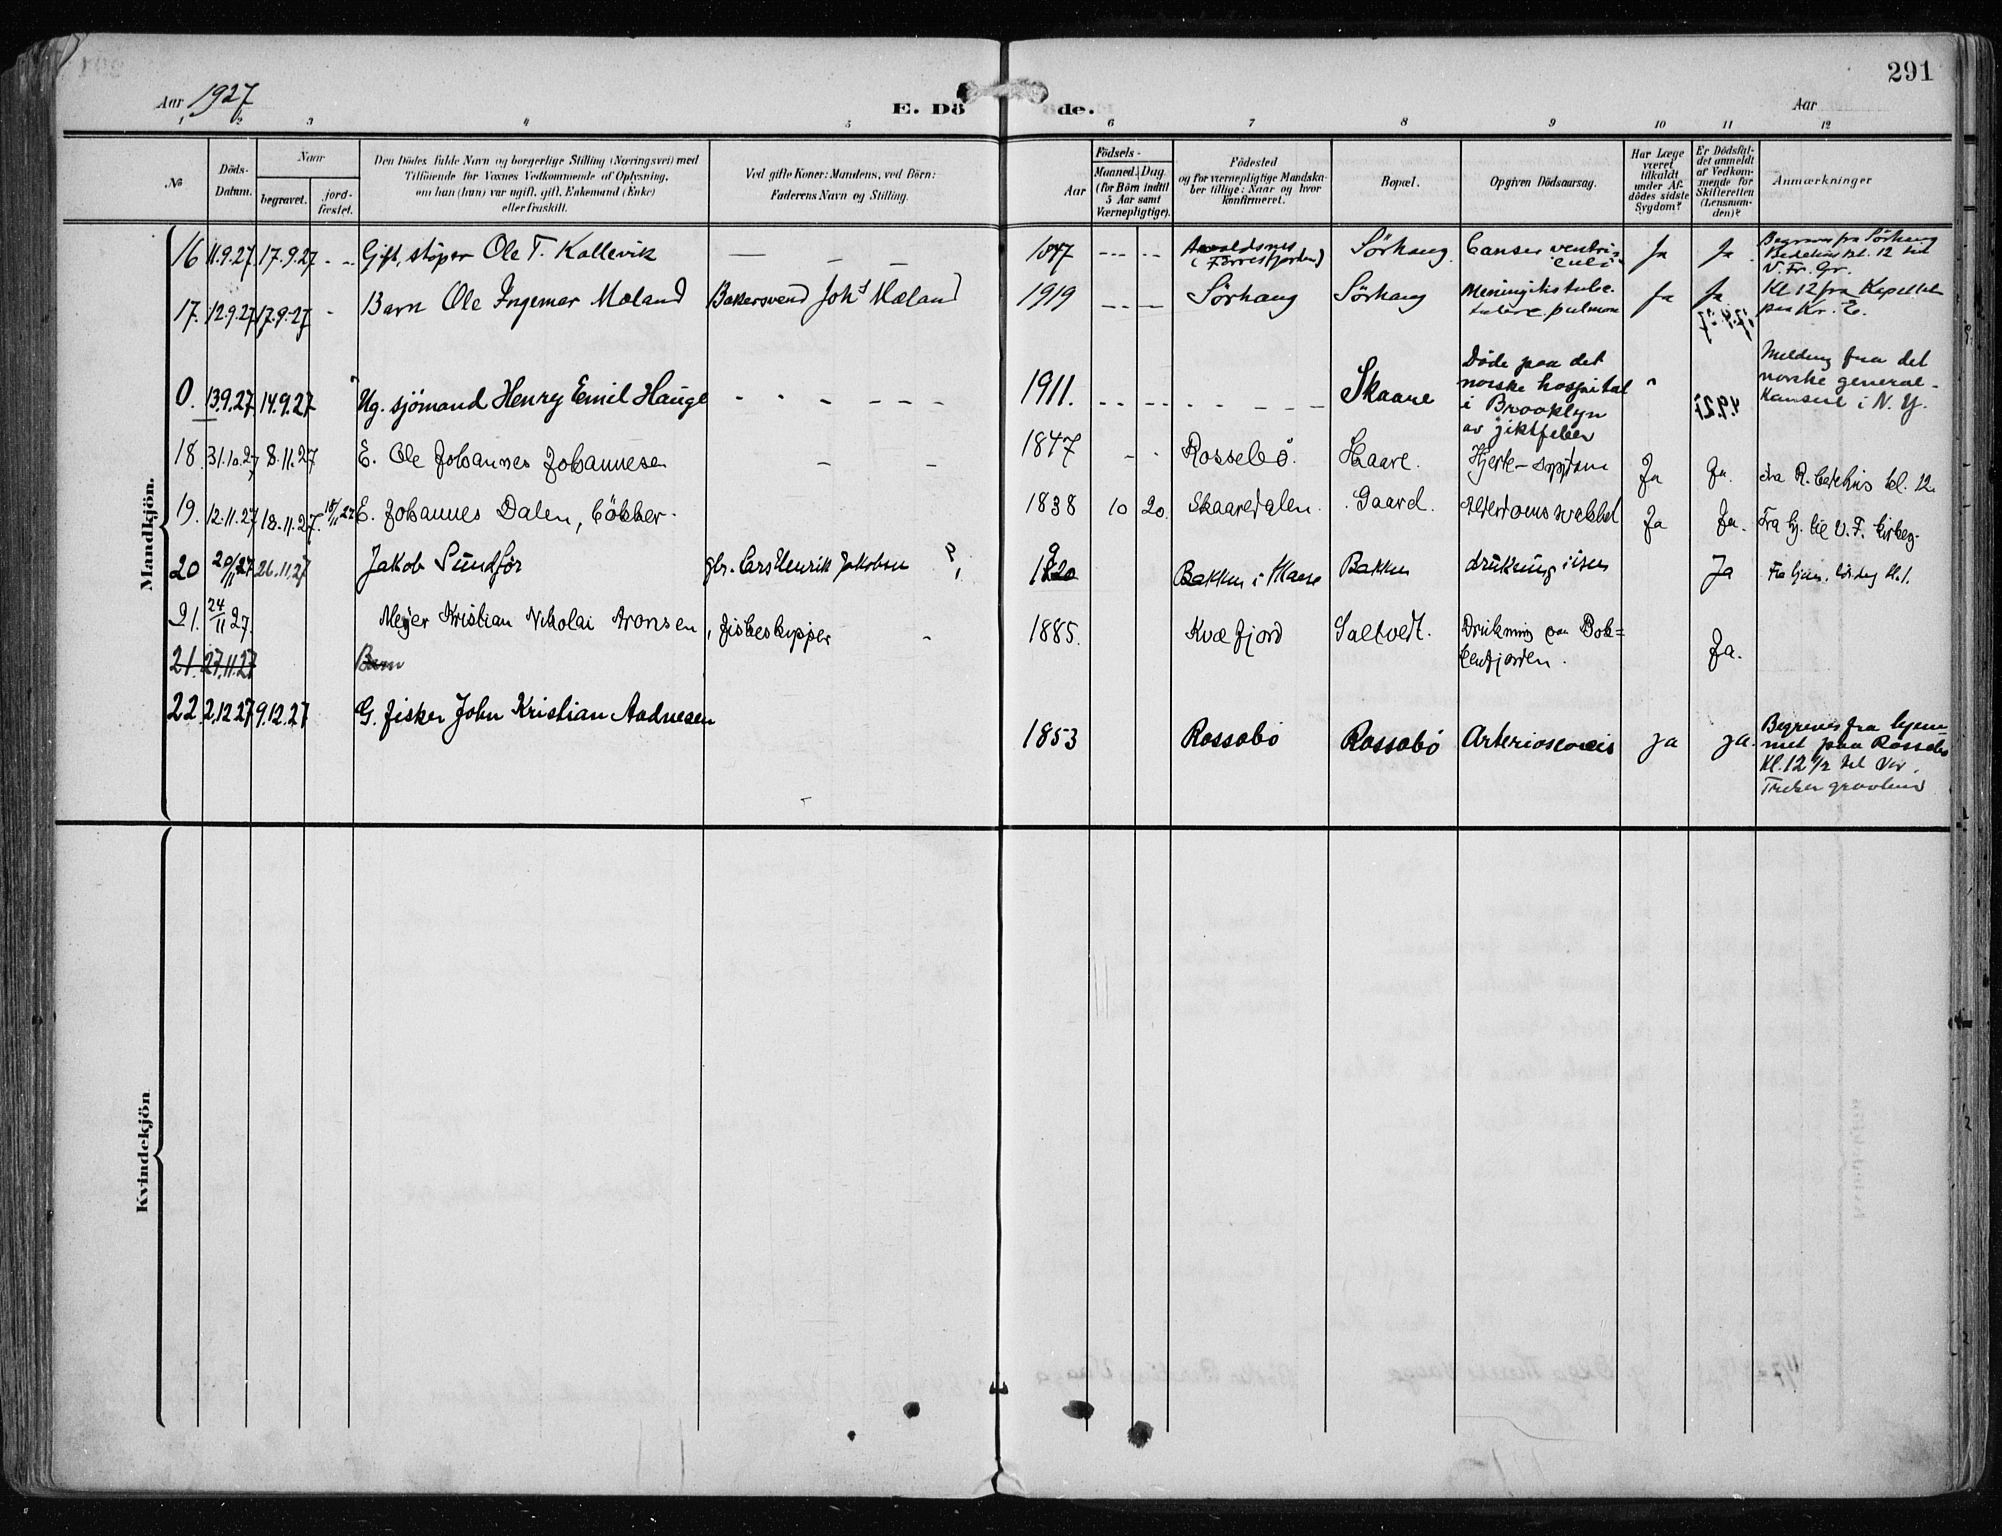 291
Aar 1927
E. Döde.
Aar
1 2 3 4 5 6 7 8 9 10 11 12
No
Döds-Datum.
Naar
begravet.
jord-fæstet.
Den Dödes fulde Navn og borgerlige Stilling (Næringsvei) med
Tilföiende for Voxnes Vedkommende af Oplysning,
om han (hun) var ugift, gift, Enkemand (Enke)
eller fraskilt.
Ved gifte Koner: Mandens, ved Börn:
Faderens Navn og Stilling.
Födsels-
Aar
Maaned. Dag
(for Börn indtil
5 Aar samt
Værnepligtige).
Födested
og for værnepligtige Mandska-
ber tillige: Naar og hvor
konfirmeret.
Bopæl.
Opgiven Dödsaarsag.
Har Læge
været
tilkaldt
under Af-
dödes sidste
Sygdom?
Er Dödsfal-
det anmeldt
af Vedkom-
mende for
Skifteretten
(Lensman-
den)?
Anmærkninger
Mandkjön.
16 11.9.27 17.9.27 - - Gift, stöper Ole T. Kallevik — — — 1847 --- -- Avaldsnes (i Førresfjorden) Sörhaug Cancer ventriculi Ja Ja Begraves fra Sörhaug Bedehus kl. 12 til V. Fr. Gr.
17. 12.9.27 17.9.27 - Barn Ole Ingemar Mæland Bakersvend Johs Mæland 1919 --- -- Sörhaug Sörhaug Meningitis tube. tuberc. pulmon Ja Ja 17.9.27 Kl 12 fra Kapellet paa Kr. E.
0. 13.9.27 14.9.27 " Ug. sjömand Henry Emil Hauge - - - - - - 1911. Skaare Döde paa det norske hospital i Brooklyn av giktfeber " Melding fra det norske general-konsul i N.Y.
18. 31.10.27 8.11.27 E. Ole Johannes Johannesen - - 1847 - - Rossebö. Skaare. Hjerte- Ja Ja. Fra R. bedehus kl. 12.
19. 12.11.27 18.11.27. 18/11 27 E. Johannes Dalen, 1838 10 20. Skaaredalen. Gaard. Alderdomssvakhet Ja Ja. Fra Hj. til V. F.
20 20/11 27 26.11.27 Jakob Sundför gbr. Lars Henrik Jakobsen ?, 1920 Bakken i Skaare Bakken drukning i isen Ja Fra hjem. lördag kl. 1.
21. 24/11 27. Meyer Kristian Nikolai Aronsen, fiskeskipper - 1885. Kvæfjord Saltvedt. Drukning paa Bokkenfjorden. Ja.
21. 27.11.27 Barn
22 2.12 27 9.12.27 G. fisker John Kristian Aadnesen 1853 Rossabö Rossabö Arterioscoreis ja ja. Begraves fra hjemmet paa Rossabö Kl. 12 1/2 til Vor Frelser gravlund
Kvindekjön